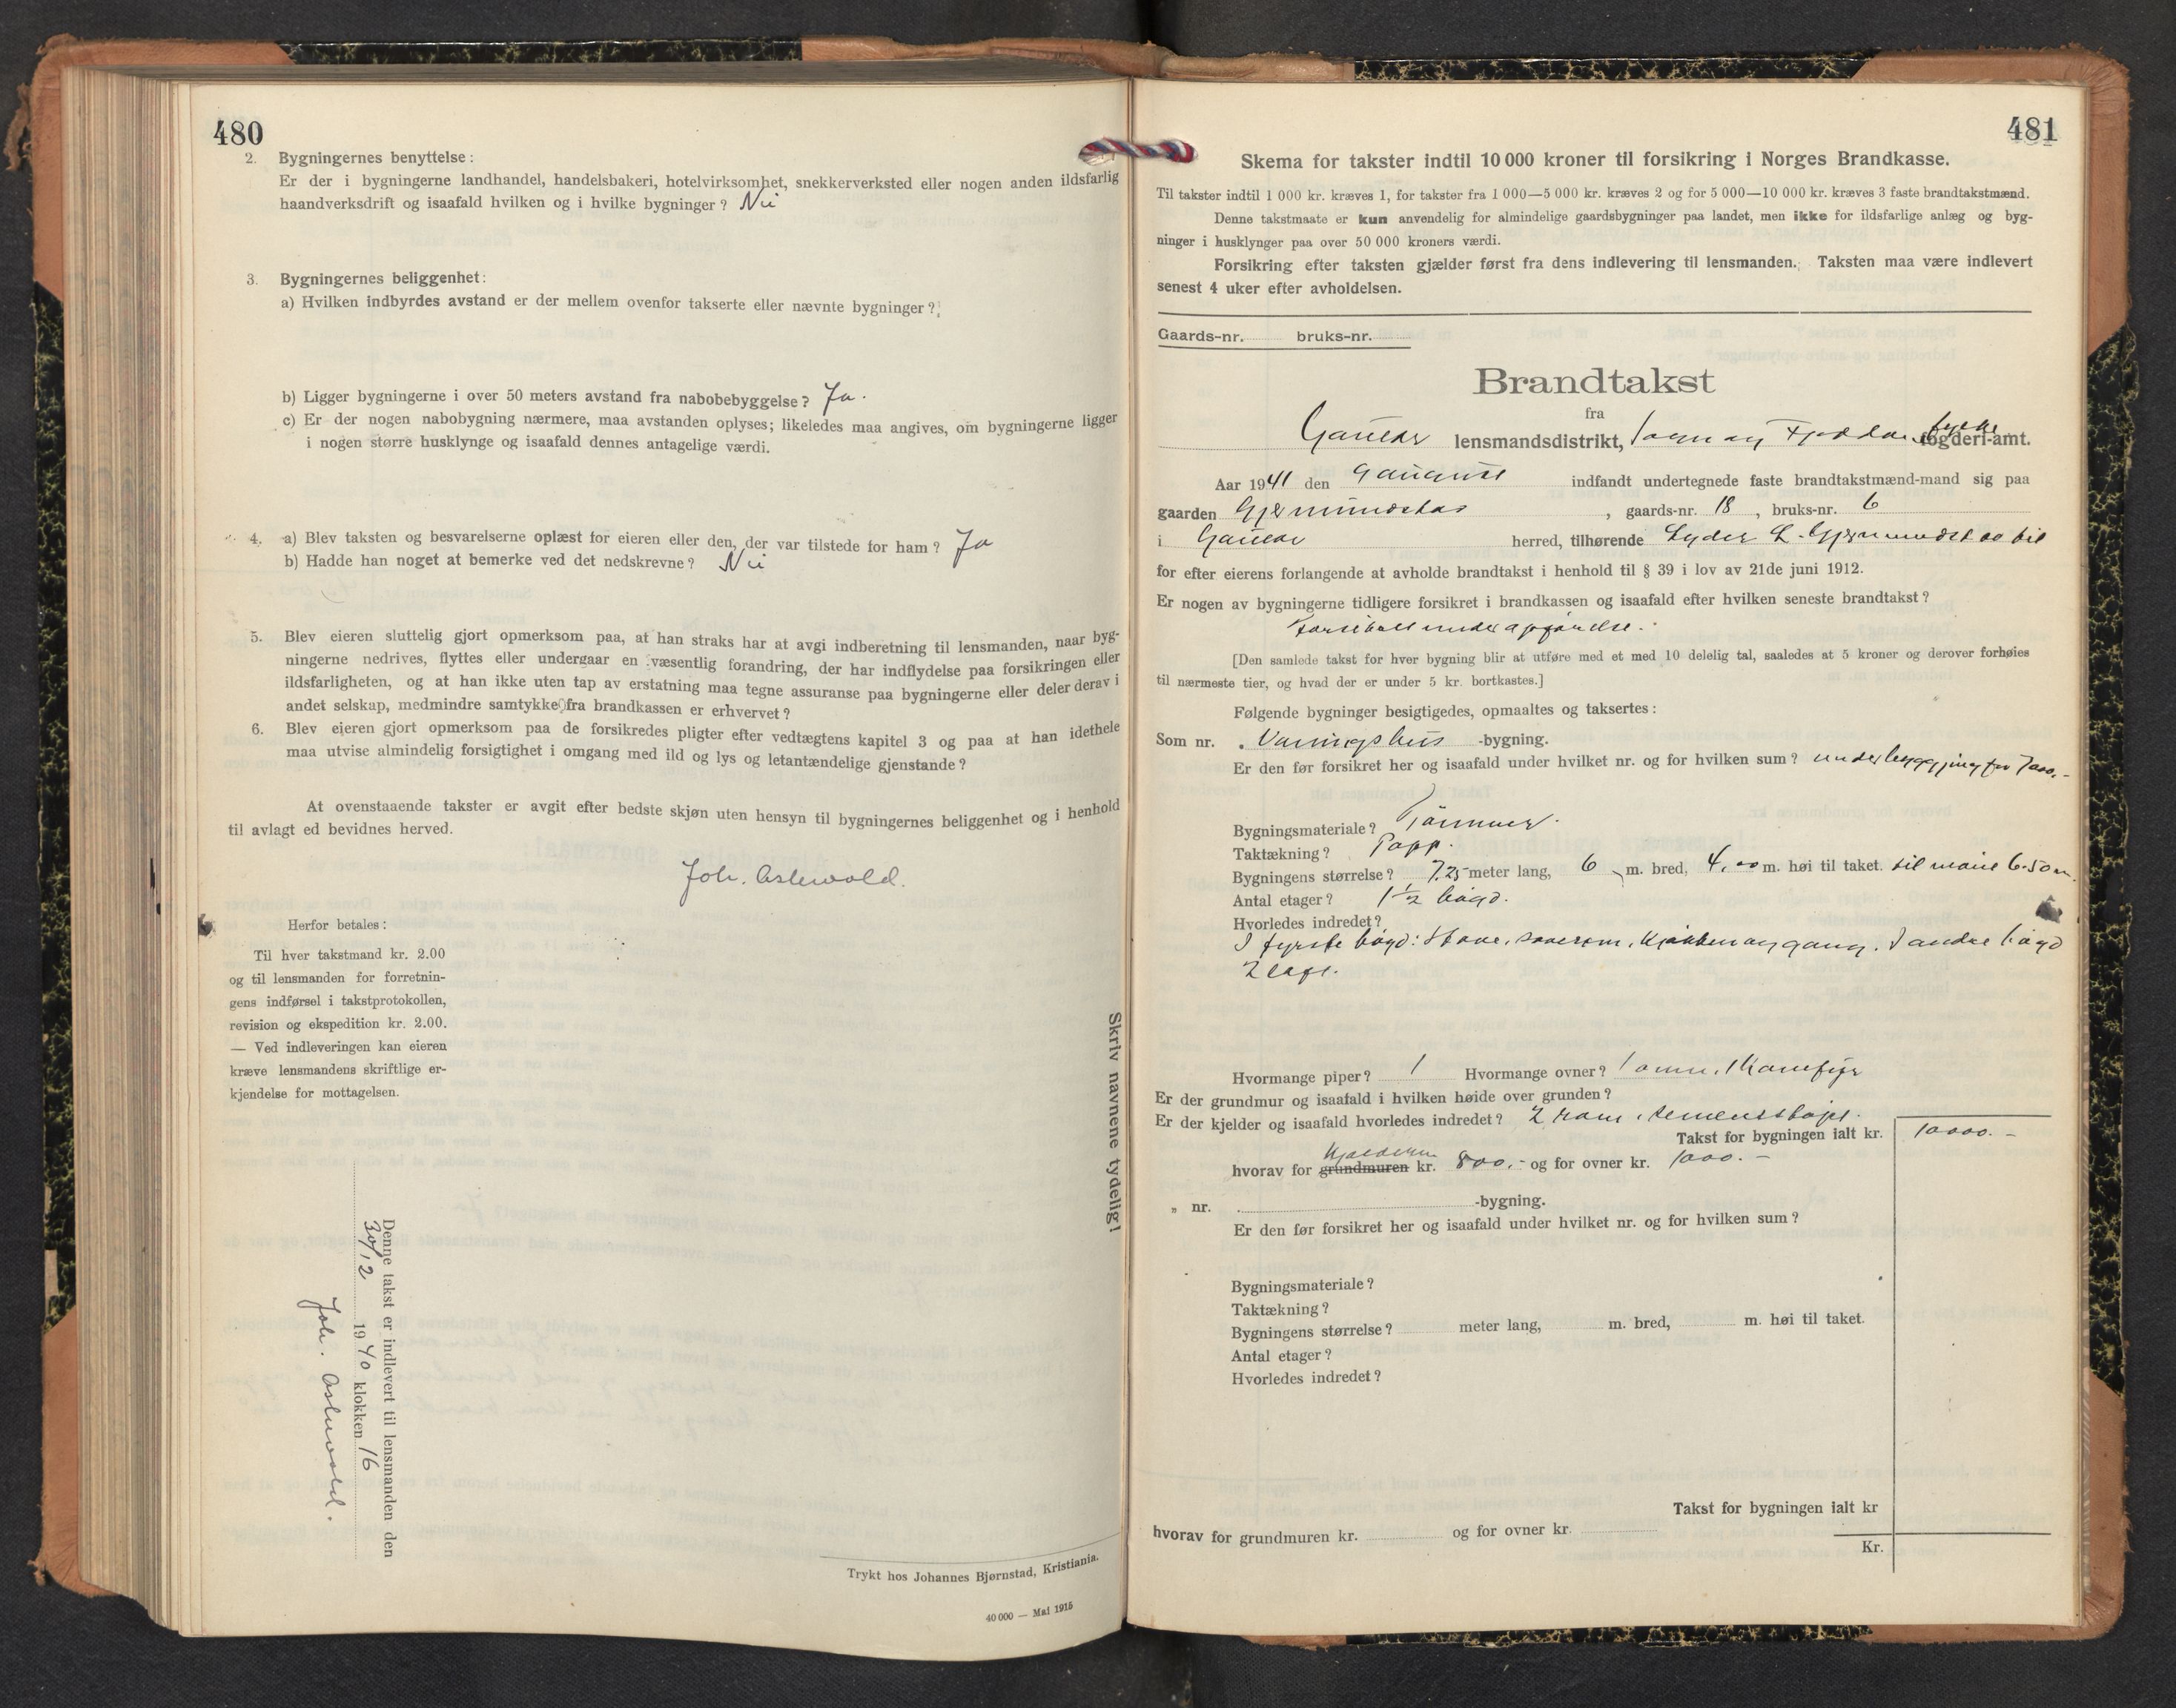 480
2. Bygningernes benyttelse:
Er der i bygningerne landhandel, handelsbakeri, hotelvirksomhet, snekkerverksted eller nogen anden ildsfarlig
haandverksdrift og isaafald hvilken og i hvilke bygninger? Nei
3. Bygningernes beliggenhet:
a) Hvilken indbyrdes avstand er der mellem ovenfor takserte eller nævnte bygninger?
b) Ligger bygningerne i over 50 meters avstand fra nabobebyggelse? Ja.
c) Er der nogen nabobygning nærmere, maa avstanden oplyses; likeledes maa angives, om bygningerne ligger
i nogen større husklynge og isaafald dennes antagelige værdi.
4. a) Blev taksten og besvarelserne oplæst for eieren eller den, der var tilstede for ham? Ja
b) Hadde han noget at bemerke ved det nedskrevne? Nei
5. Blev eieren sluttelig gjort opmerksom paa, at han straks har at avgi indberetning til lensmanden, naar byg-
ningerne nedrives, flyttes eller undergaar en væsentlig forandring, der har indflydelse paa forsikringen eller
ildsfarligheten, og at han ikke uten tap av erstatning maa tegne assuranse paa bygningerne eller deler derav i
andet selskap, medmindre samtykke fra brandkassen er erhvervet?
6. Blev eieren gjort opmerksom paa de forsikredes pligter efter vedtægtens kapitel 3 og paa at han idethele
maa utvise almindelig forsigtighet i omgang med ild og lys og letantændelige gjenstande?
At ovenstaaende takster er avgit efter bedste skjøn uten hensyn til bygningernes beliggenhet og i henhold
til avlagt ed bevidnes herved.
Joh. Askevold.
Herfor betales:
Til hver takstmand kr. 2.00
og til lensmanden for forretnin-
gens indførsel i takstprotokollen,
revision og ekspedition kr. 2.00.
— Ved indleveringen kan eieren
kræve lensmandens skriftlige er-
kjendelse for mottagelsen.
Skriv navnene tydelig!
Denne takst er indlevert til lensmanden den
30/12 1940 klokken 16
Joh. Askevold.
Trykt hos Johannes Bjørnstad, Kristiania.
40 000 — Mai 1915
481
Skema for takster indtil 10 000 kroner til forsikring i Norges Brandkasse.
Til takster indtil 1 000 kr. kræves 1, for takster fra 1 000—5 000 kr. kræves 2 og for 5 000—10 000 kr. kræves 3 faste brandtakstmænd.
Denne takstmaate er kun anvendelig for almindelige gaardsbygninger paa landet, men ikke for ildsfarlige anlæg og byg-
ninger i husklynger paa over 50 000 kroners værdi.
Forsikring efter taksten gjælder først fra dens indlevering til lensmanden. Taksten maa være indlevert
senest 4 uker efter avholdelsen.
Gaards-nr. bruks-nr.
Brandtakst
fra
Gaular lensmandsdistrikt, Sogn og Fjordane fylke fogderi-amt.
Aar 1941 den 9 august indfandt undertegnede faste brandtakstmænd-mand sig paa
gaarden Gjermundstad, gaards-nr. 18, bruks-nr. 6
i Gaular herred, tilhørende Lyder L. Gjermundstad til
for efter eierens forlangende at avholde brandtakst i henhold til § 39 i lov av 21de juni 1912.
Er nogen av bygningerne tidligere forsikret i brandkassen og isaafald efter hvilken seneste brandtakst?
under appførelse.
[Den samlede takst for hver bygning blir at utføre med et med 10 delelig tal, saaledes at 5 kroner og derover forhøies
til nærmeste tier, og hvad der er under 5 kr. bortkastes.]
Følgende bygninger besigtigedes, opmaaltes og taksertes:
Som nr. Vaaningshus -bygning.
Er den før forsikret her og isaafald under hvilket nr. og for hvilken sum? under byggjing for 7000.-
Bygningsmateriale? Tømmer.
Taktækning? Papp.
Bygningens størrelse? 7,25 meter lang, 6 m. bred, 4,00 m. høi til taket. til møne 6.50 m.
Antal etager? 1 1/2 høgd.
Hvorledes indredet?
I fyrste høgd: Stove, soverom, kjøkken og gang. I andre høgd
2 loft.
Hvormange piper? 1 Hvormange ovner? 1 omn, 1 komfyr
Er der grundmur og isaafald i hvilken høide over grunden?
Er der kjelder og isaafald hvorledes indredet? 2 rom, sementstøpt.
Takst for bygningen ialt kr. 10000.-
hvorav for grundmuren Kjelderen kr. 800.- og for ovner kr. 1000.-
„ nr. -bygning.
Er den før forsikret her og isaafald under hvilket nr. og for hvilken sum?
Bygningsmateriale?
Taktækning?
Bygningens størrelse? meter lang, m. bred, m. høi til taket.
Antal etager?
Hvorledes indredet?
Takst for bygningen ialt kr
hvorav for grundmuren kr. og for ovner kr.
Kr.